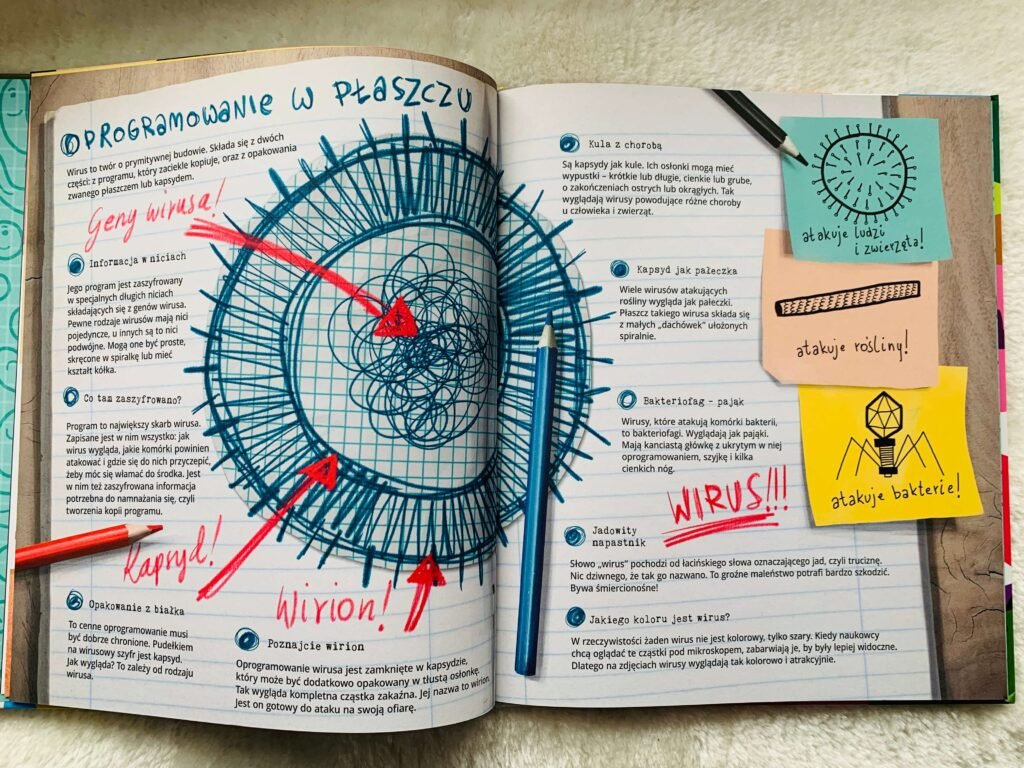 OPROGRAMOWANIE W PŁASZCZU
Wirus to twór o prymitywnej budowie. Składa się z dwóch
części: z programu, który zaciekle kopiuje, oraz z opakowania
zwanego płaszczem lub kapsydem.
Geny wirusa!
Informacja w niciach
Jego program jest zaszyfrowany
w specjalnych długich niciach
składających się z genów wirusa.
Pewne rodzaje wirusów mają nici
pojedyncze, u innych są to nici
podwójne. Mogą one być proste,
skręcone w spiralkę lub mieć
kształt kółka.
Co tam zaszyfrowano?
Program to największy skarb wirusa.
Zapisane jest w nim wszystko: jak
wirus wygląda, jakie komórki powinien
atakować i gdzie się do nich przyczepić,
żeby móc się włamać do środka. Jest
w nim też zaszyfrowana informacja
potrzebna do namnażania się, czyli
tworzenia kopii programu.
Kapsyd!
Wirion!
Opakowanie z białka
To cenne oprogramowanie musi
być dobrze chronione. Pudełkiem
na wirusowy szyfr jest kapsyd.
Jak wygląda? To zależy od rodzaju
wirusa.
Poznajcie wirion
Oprogramowanie wirusa jest zamknięte w kapsydzie,
który może być dodatkowo opakowany w tłustą osłonkę.
Tak wygląda kompletna cząstka zakaźna. Jej nazwa to wirion.
Jest on gotowy do ataku na swoją ofiarę.
Kula z chorobą
Są kapsydy jak kule. Ich osłonki mogą mieć
wypustki – krótkie lub długie, cienkie lub grube,
o zakończeniach ostrych lub okrągłych. Tak
wyglądają wirusy powodujące różne choroby
u człowieka i zwierząt.
atakuje ludzi
i zwierzęta!
Kapsyd jak pałeczka
Wiele wirusów atakujących
rośliny wygląda jak pałeczki.
Płaszcz takiego wirusa składa się
z małych „dachówek" ułożonych
spiralnie.
atakuje rośliny!
Bakteriofag – pająk
Wirusy, które atakują komórki bakterii,
to bakteriofagi. Wyglądają jak pająki.
Mają kanciastą główkę z ukrytym w niej
oprogramowaniem, szyjkę i kilka
cienkich nóg.
atakuje bakterie!
WIRUS!!!
Jadowity
napastnik
Słowo „wirus" pochodzi od łacińskiego słowa oznaczającego jad, czyli truciznę.
Nic dziwnego, że tak go nazwano. To groźne maleństwo potrafi bardzo szkodzić.
Bywa śmiercionośne!
Jakiego koloru jest wirus?
W rzeczywistości żaden wirus nie jest kolorowy, tylko szary. Kiedy naukowcy
chcą oglądać te cząstki pod mikroskopem, zabarwiają je, by były lepiej widoczne.
Dlatego na zdjęciach wirusy wyglądają tak kolorowo i atrakcyjnie.